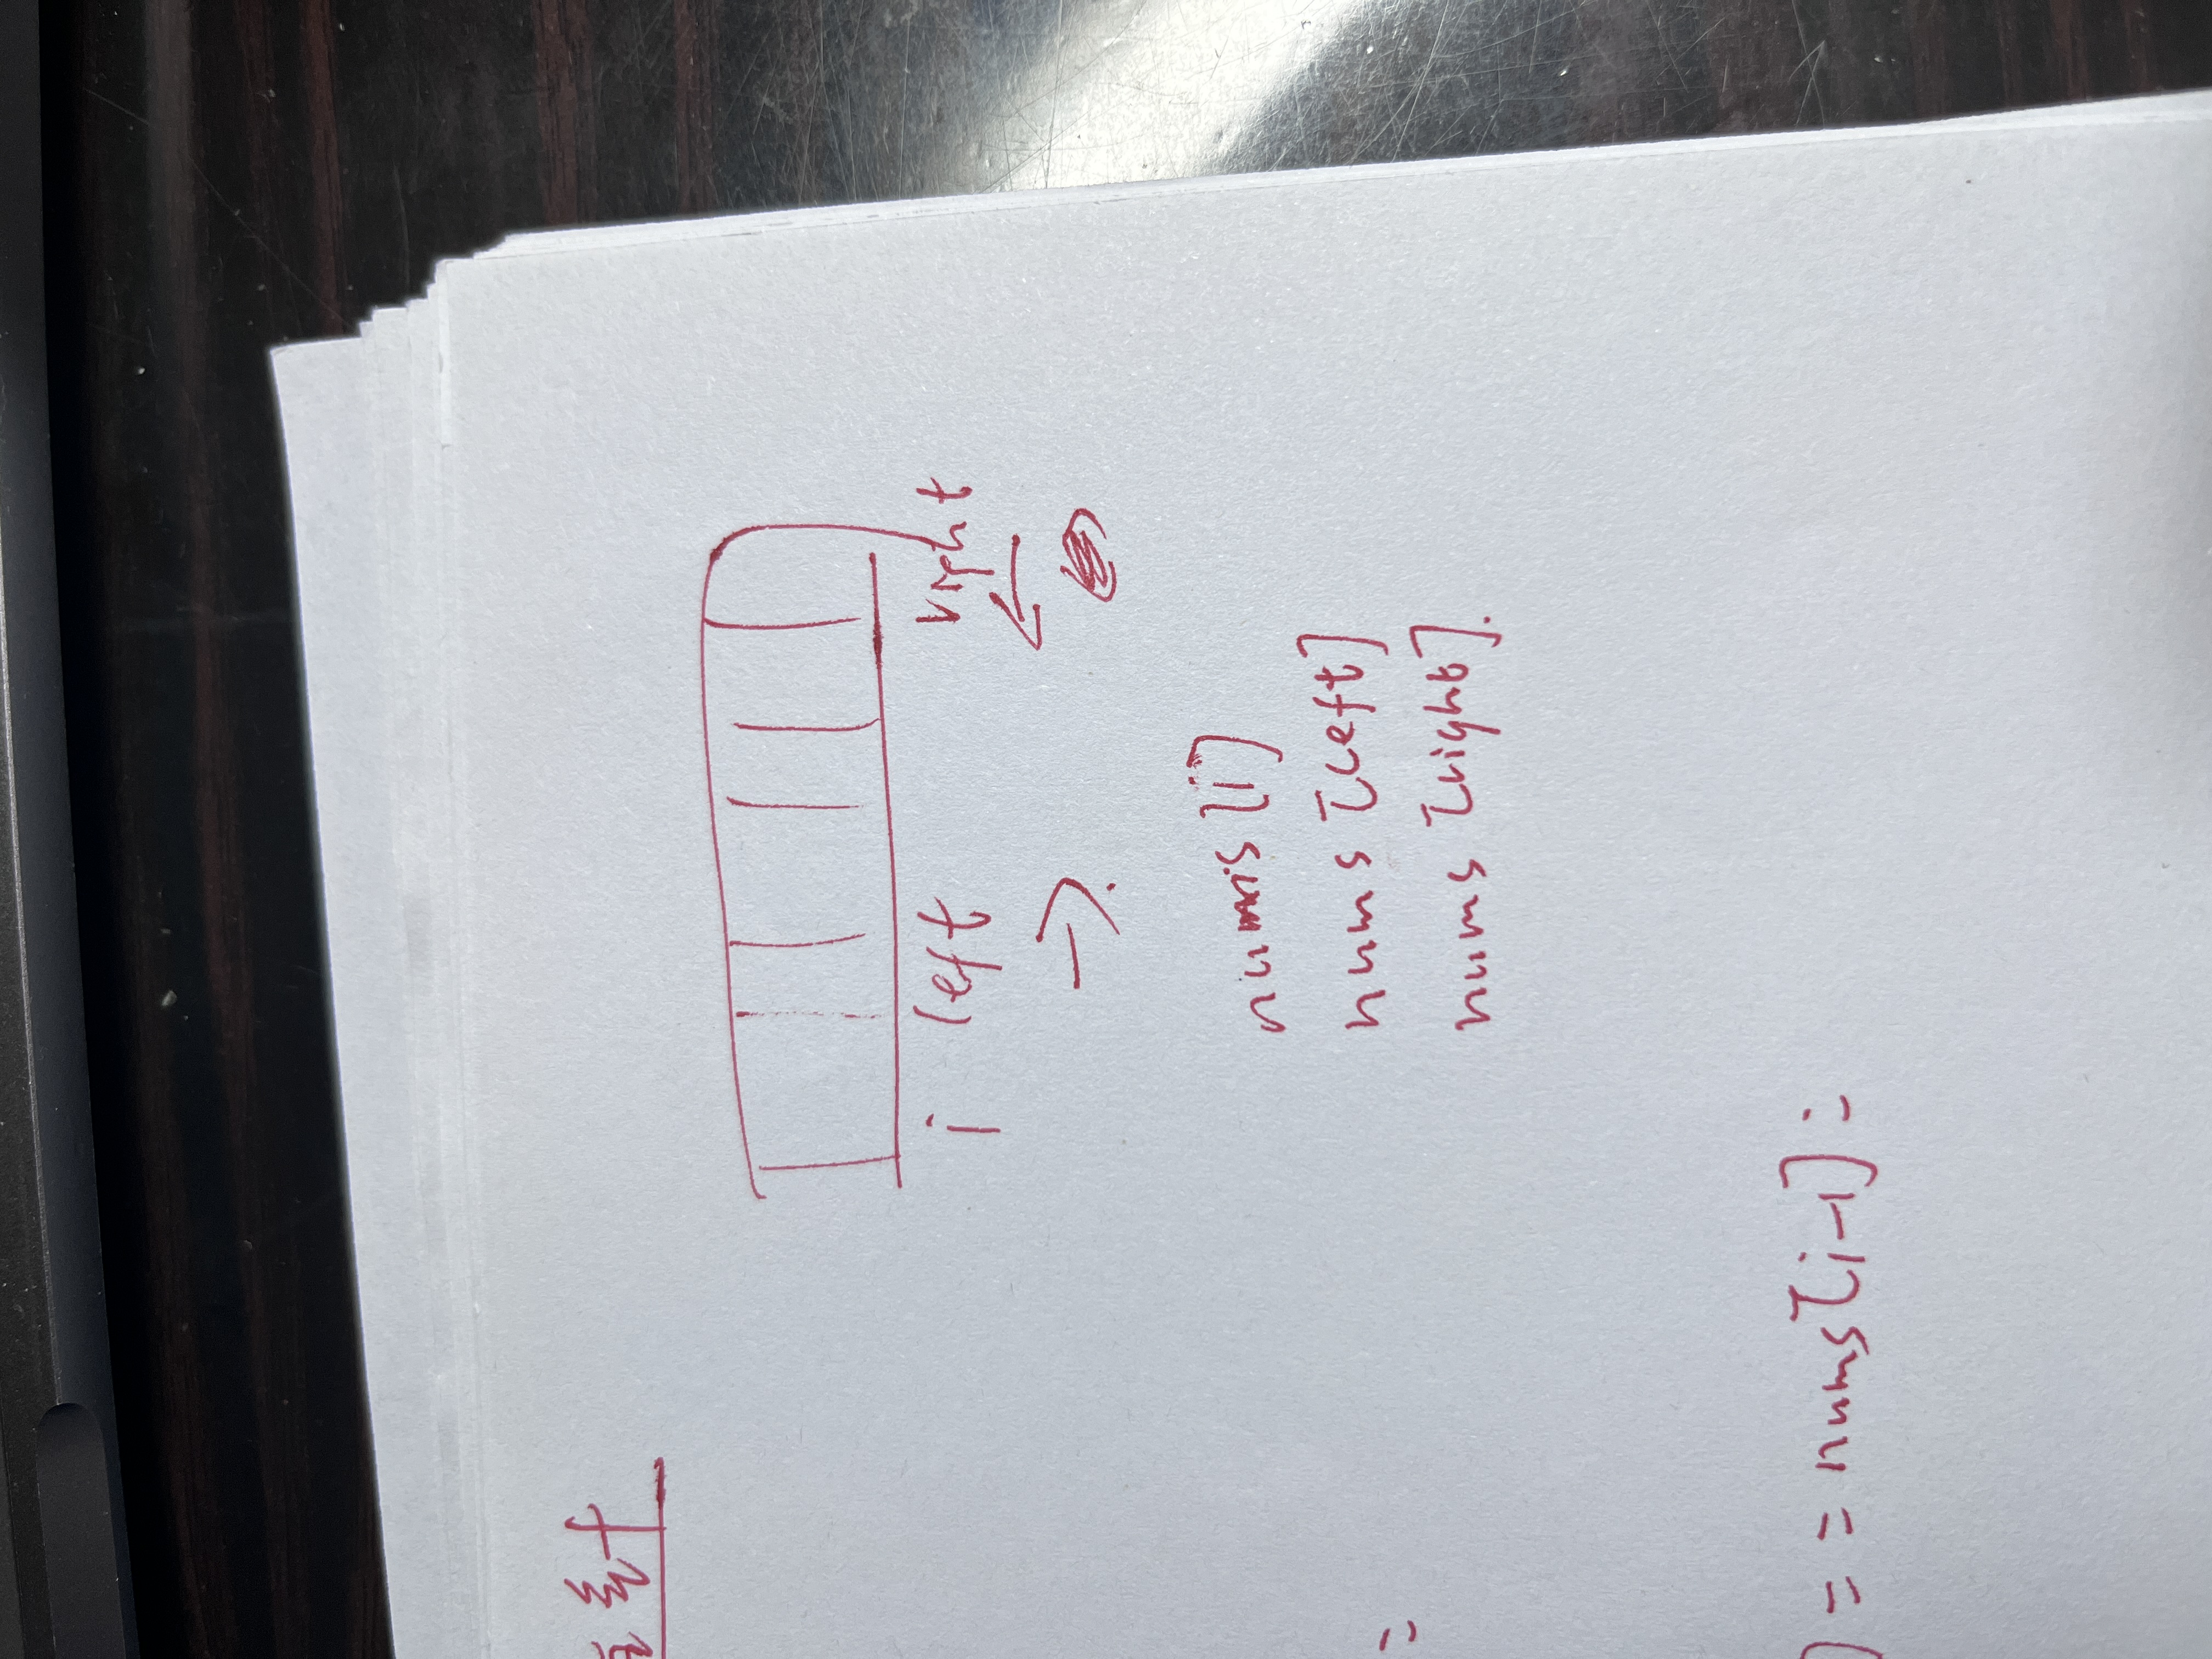 针
i left right
nums[i]
nums[left]
nums[right].
=
] == nums[i-1] =